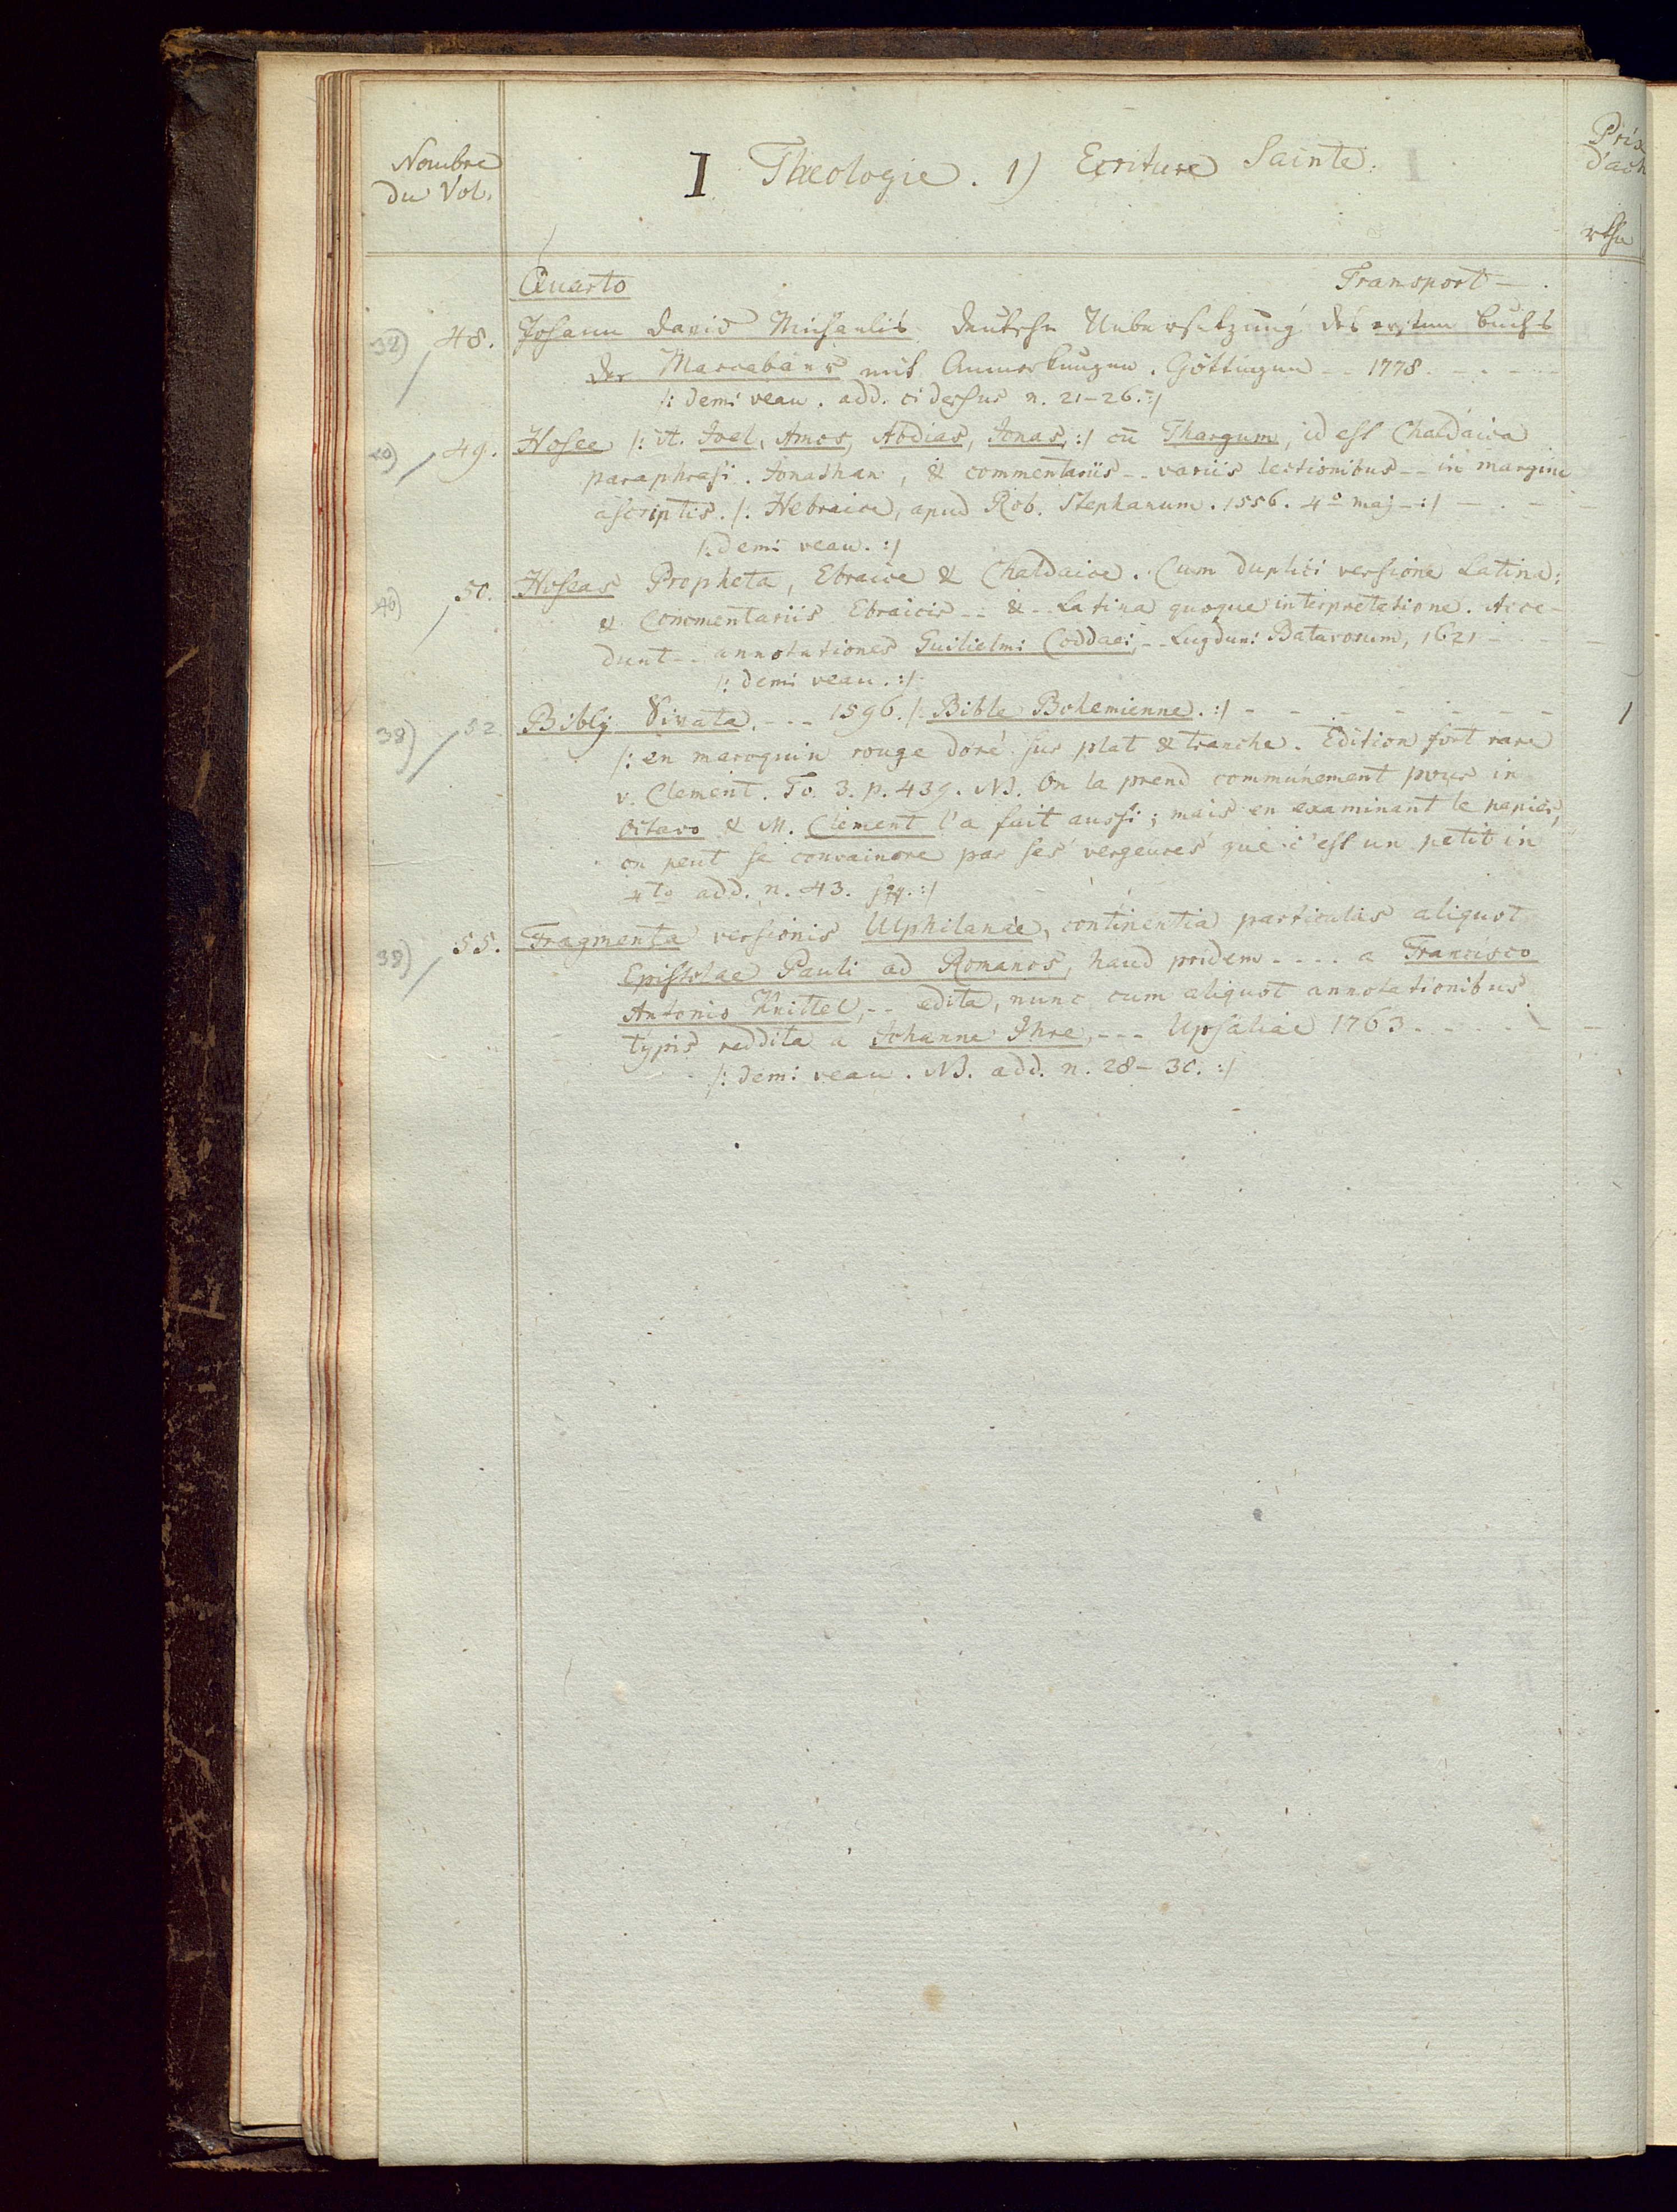 Nombre
du Vol.
I Theologie. 1) Ecriture Sainte.
Prix
d'ach
rthr
Quarto
Transport - .
38) 48. Johann David Michaelis deutsche Uebersetzung des ersten Buchs
der Maccabäer mit Anmerkungen. Göttingen -- 1778 - - - -
/: demi veau. add. ci dessus n. 21-26. :/
40) 49. Hosee /: it. Joel, Amos, Abdias, Jonas, :/ cū Thargum, id est Chaldaica
paraphrasi. Jonathan, & commentariis -- variis lectionibus -- in margine
ascriptis. /: Hebraice, apud Rob. Stephanum. 1556. 4º maj - :/ - . -
/: demi veau. :/
40) 50. Hoseas Propheta, Ebraice & Chaldaice. Cum duplici versione Latina:
& Commentariis Ebraicis -- & - Latina quoque interpretatione. Acce-
dunt -- annotationes Guilielmi Coddaei, -- Lugduni Batavorum, 1621 - - -
/: demi veau. :/
38) 52. Biblj Swata. --- 1596. /: Bible Bohemienne. :/ - - - - - - - 1
/: en maroquin rouge doré sur plat & tranche. Edition fort rare
v. Clement. To. 3. p. 439. NB. On la prend communement pour in
Octavo & M. Clement l'a fait aussi; mais en examinant le papier,
on peut se convaincre par ses vergeures que c'est un petit in
4to add. n. 43. sqq. :/
38) 55. Fragmenta versionis Ulphilanae, continentia particulas aliquot
Epistolae Pauli ad Romanos, haud pridem - - - - a Francisco
Antonio Knittel, -- edita, nunc cum aliquot annotationibus
typis reddita a Johanne Ihre, --- Upsaliae 1763. - - - - -
/: demi veau. NB. add. n. 28-30. :/